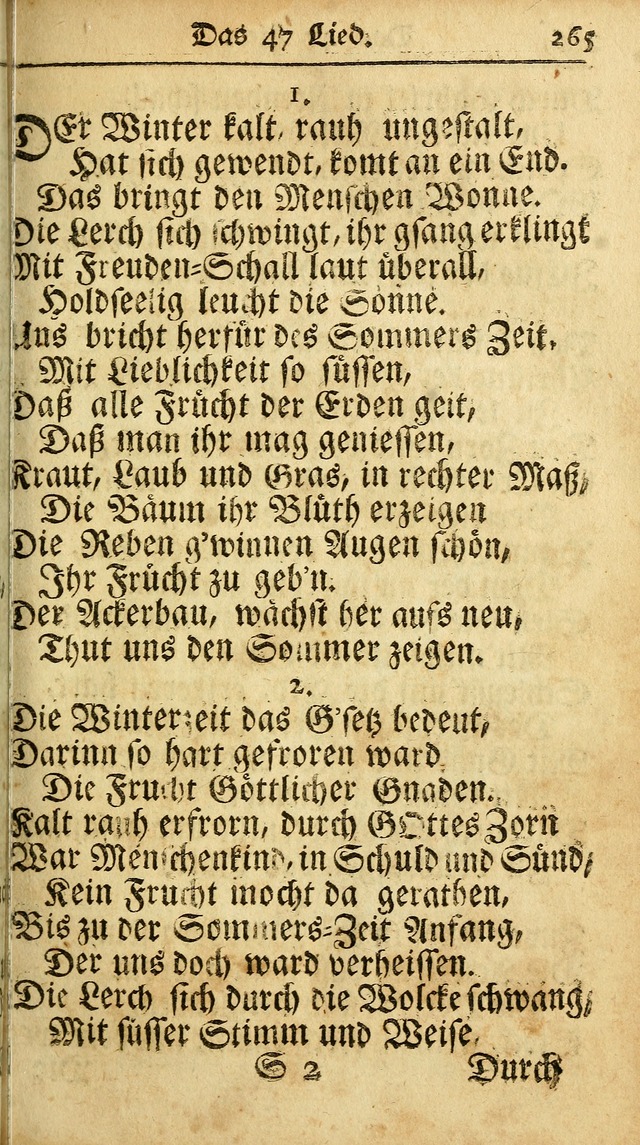 Das 47 Lied. 265
1.
DEr Winter kalt, rauh ungestalt,
Hat sich gewendt, komt an ein End.
Das bringt den Menschen Wonne.
Die Lerch sich schwingt, ihr gsang erklingt
Mit Freuden-Schall laut überall,
Holdseelig leucht die Sonne.
Uns bricht herfür des Sommers Zeit.
Mit Lieblichkeit so süssen,
Daß alle Frücht der Erden geit,
Daß man ihr mag geniessen,
Kraut, Laub und Gras, in rechter Maß,
Die Bäum ihr Blüth erzeigen
Die Reben g'winnen Augen schön,
Ihr Frücht zu geb'n.
Der Ackerbau, wächst her aufs neu,
Thut uns den Sommer zeigen.
2.
Die Winterzeit das G'setz bedeut,
Darinn so hart gefroren ward
Die Frucht Göttlicher Gnaden.
Kalt rauh erfrorn, durch GOttes Zorn
War Menschenkind, in Schuld und Sünd,
Kein Frucht mocht da gerathen,
Bis zu der Sommers-Zeit Anfang,
Der uns doch ward verheissen.
Die Lerch sich durch die Wolcke schwang,
Mit süsser Stimm und Weise.
S 2 Durch